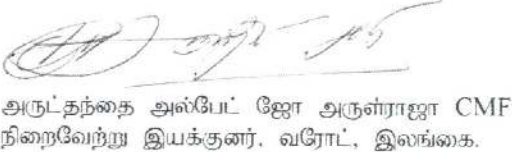 அருட்தந்தை அல்பேட் ஜோ அருள்ராஜா CMF
நிறைவேற்று இயக்குனர். வரோட், இலங்கை.